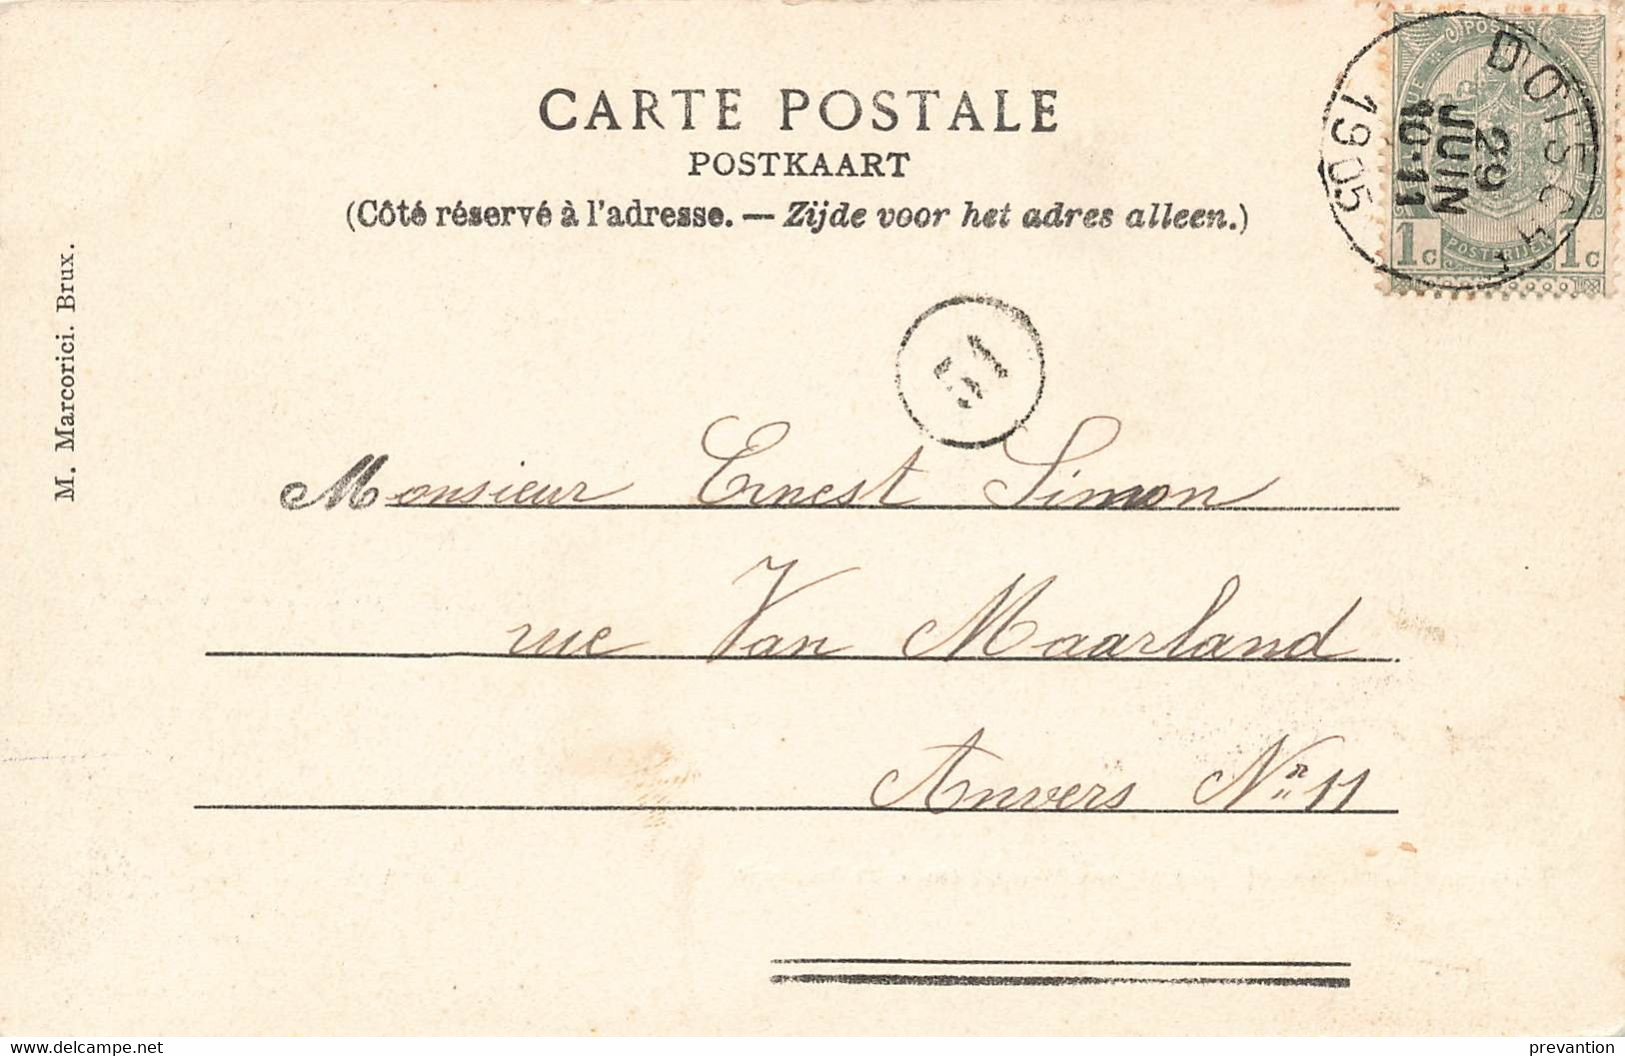 CARTE POSTALE
POSTKAART
(Côté réservé à l'adresse. — Zijde voor het adres alleen.)
M. Marcorici. Brux.
POSTES
DOISCHE
29
JUIN
10-11
1905
1c POSTERIJEN 1c
51
Monsieur Ernest Simon
rue Van Maarland
Anvers Nr 11
prevantion